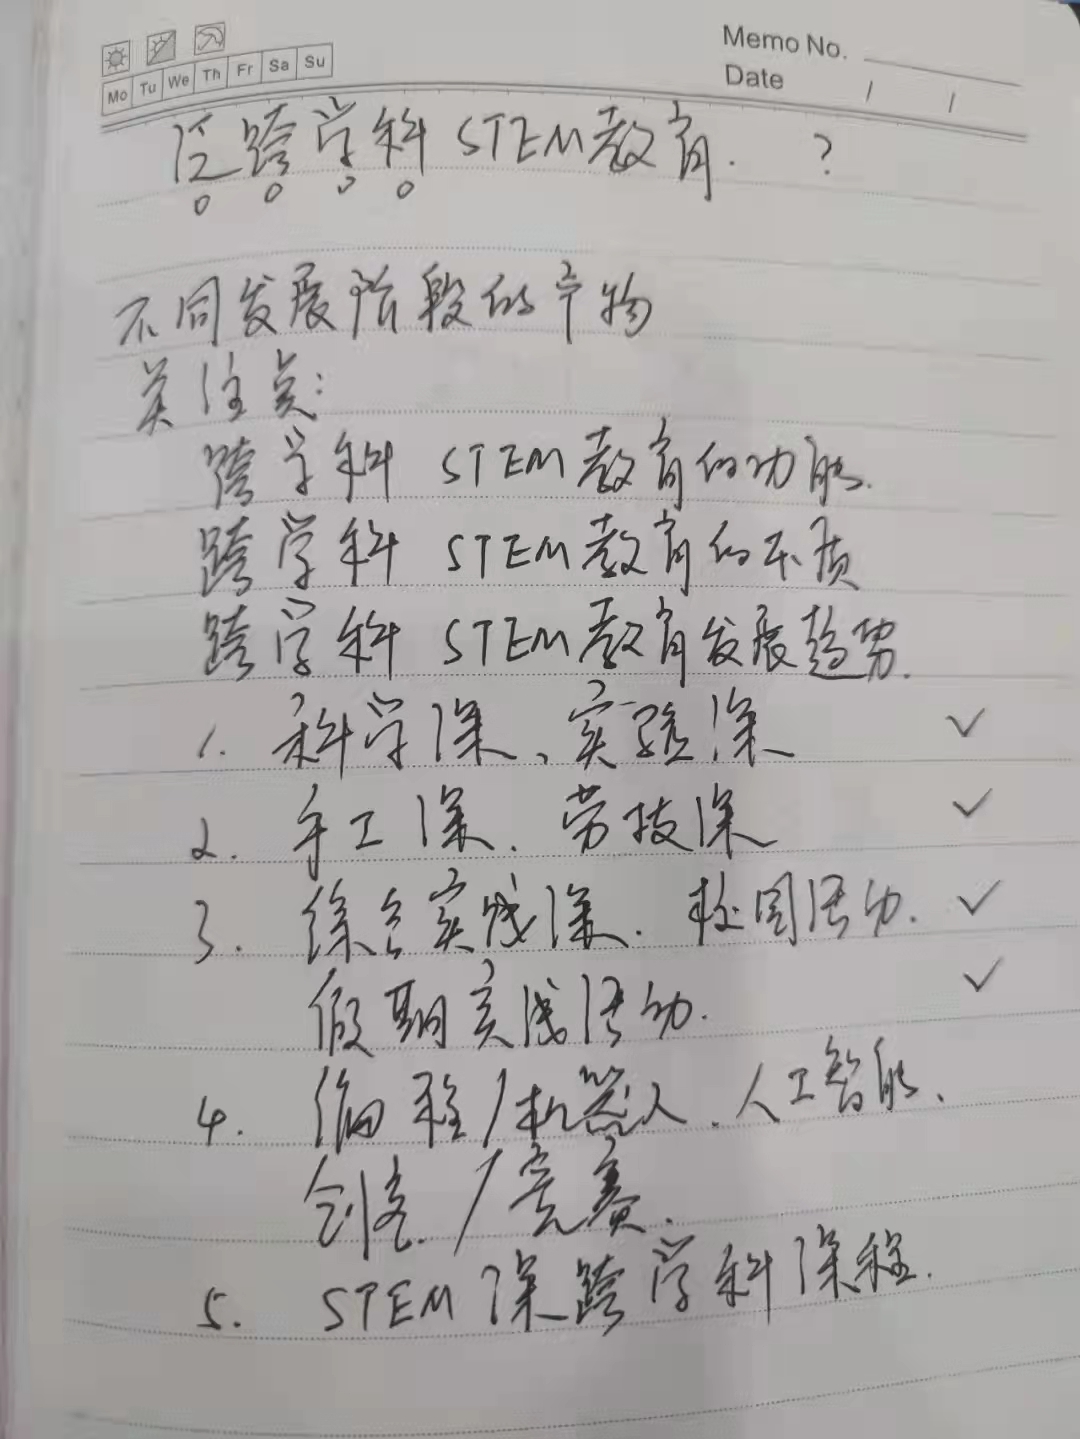 Memo No.
Mo Tu We Th Fr Sa Su
Date / /
跨学科 STEM教育. ?
不同发展阶段的产物
关注点:
跨学科 STEM教育的功能.
跨学科 STEM教育的本质
跨学科 STEM教育发展趋势.
1. 科学课、实验课 ✓
2. 手工课. 劳技课 ✓
3. 综合实践课. 校园活动. ✓
假期实践活动. ✓
4. 编程/机器人. 人工智能、
创客. /竞赛.
5. STEM 课跨学科课程.